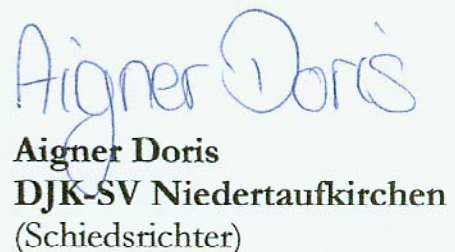 Aigner Doris
Aigner Doris
DJK-SV Niedertaufkirchen
(Schiedsrichter)